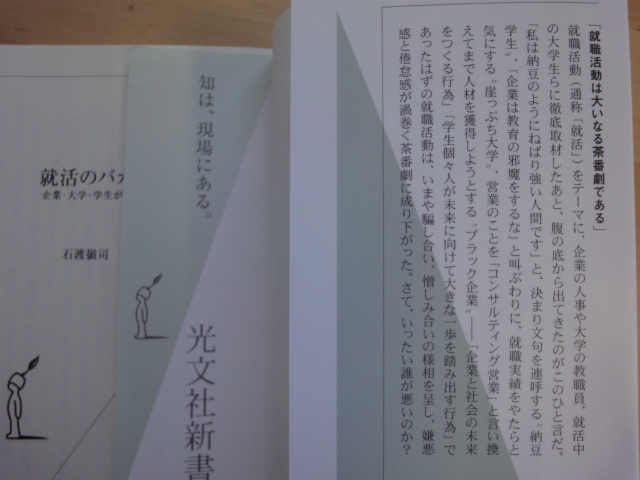 「就職活動は大いなる茶番劇である」
就職活動（通称「就活」）をテーマに、企業の人事や大学の教職員、就活中
の大学生らに徹底取材したあと、腹の底から出てきたのがこのひと言だ。
「私は納豆のようにねばり強い人間です」と、決まり文句を連呼する〝納豆
学生〟、「企業は教育の邪魔をするな」と叫ぶわりに、就職実績をやたらと
気にする〝崖っぷち大学〟、営業のことを「コンサルティング営業」と言い換
えてまで人材を獲得しようとする〝ブラック企業〟――「企業と社会の未来
をつくる行為」「学生個々人が未来に向けて大きな一歩を踏み出す行為」で
あったはずの就職活動は、いまや騙し合い、憎しみ合いの様相を呈し、嫌悪
感と倦怠感が渦巻く茶番劇に成り下がった。さて、いったい誰が悪いのか？
知は、現場にある。
光文社新書
就活のバカ
企業・大学・学生が
石渡嶺司